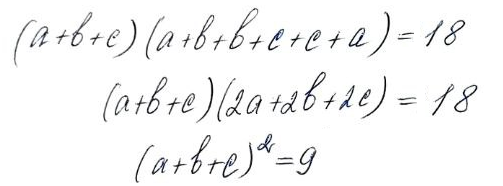 (a+b+c)(a+b+b+c+c+a)=18
(a+b+c)(2a+2b+2c)=18
(a+b+c)²=9